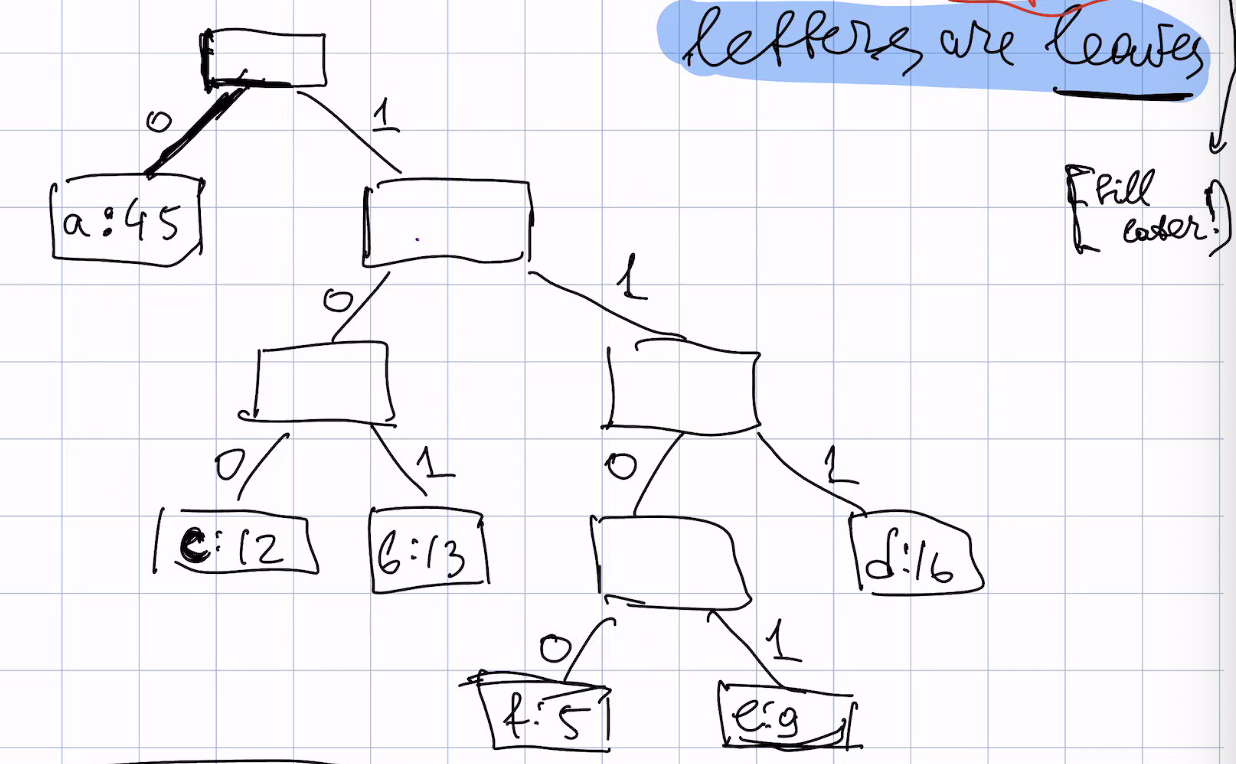 letters are leaves
0
1
a:45
[Fill
later!)
0
1
0
1
0
1
c:12
b:13
d:16
0
1
f:5
e:9